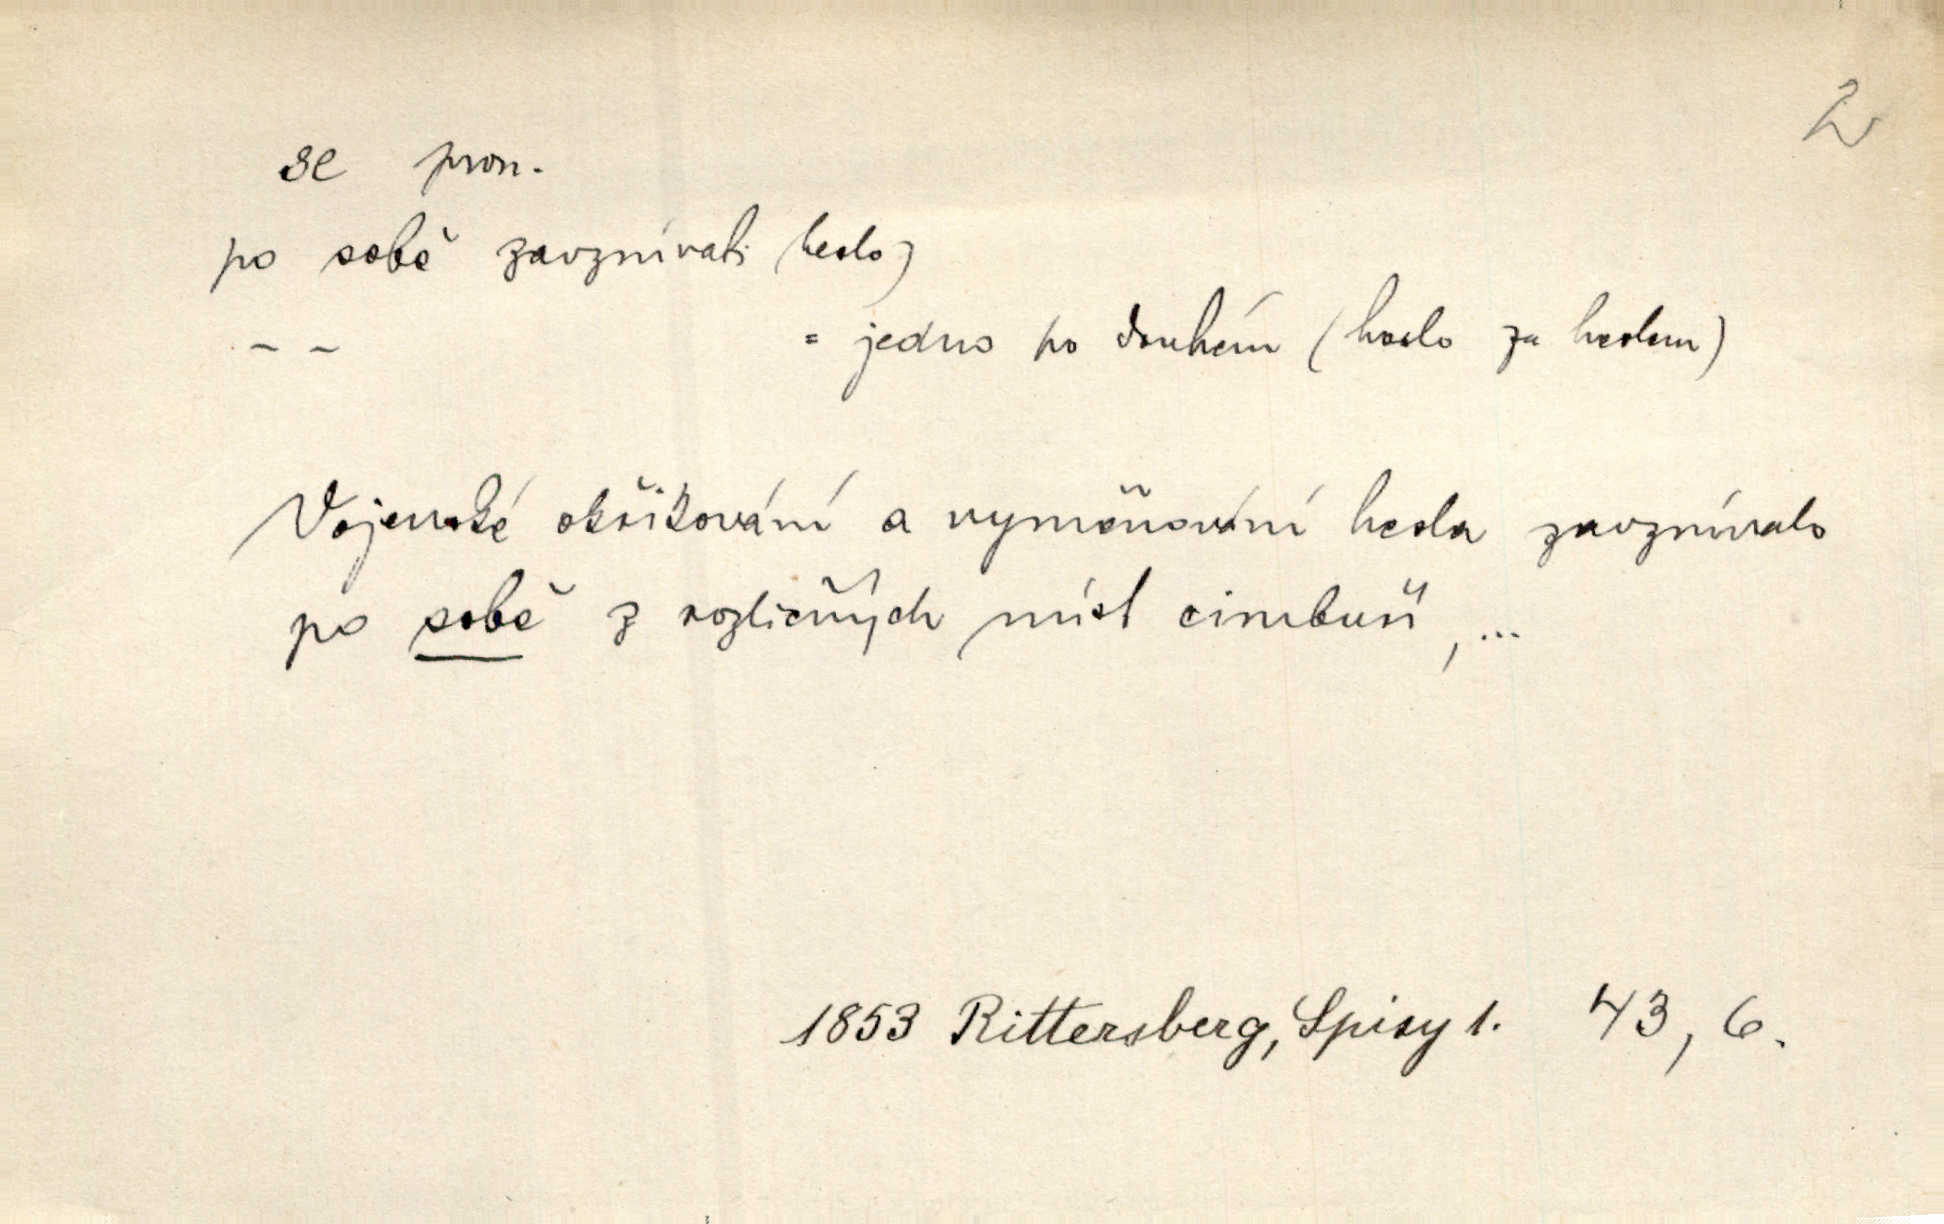 2
se pron.
po sobě zavznívati (heslo)
– – = jedno po druhém (heslo za heslem)
Vojenské okřikování a vyměňování hesla zavznívalo
po sobě z rozličných míst cimbuří, ...
1853 Rittersberg, Spisy 1. 43, 6.